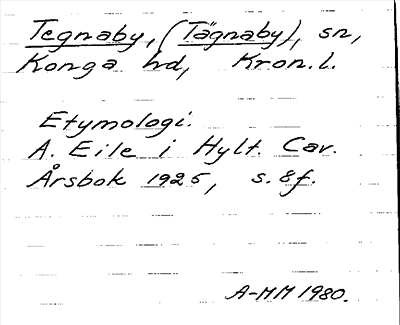 Tegnaby, (Tägnaby), sn,
Konga hd, Kron.l.
Etymologi.
A. Eile i Hylt. Cav.
Årsbok 1925, s. 8f.
A-MM 1980.